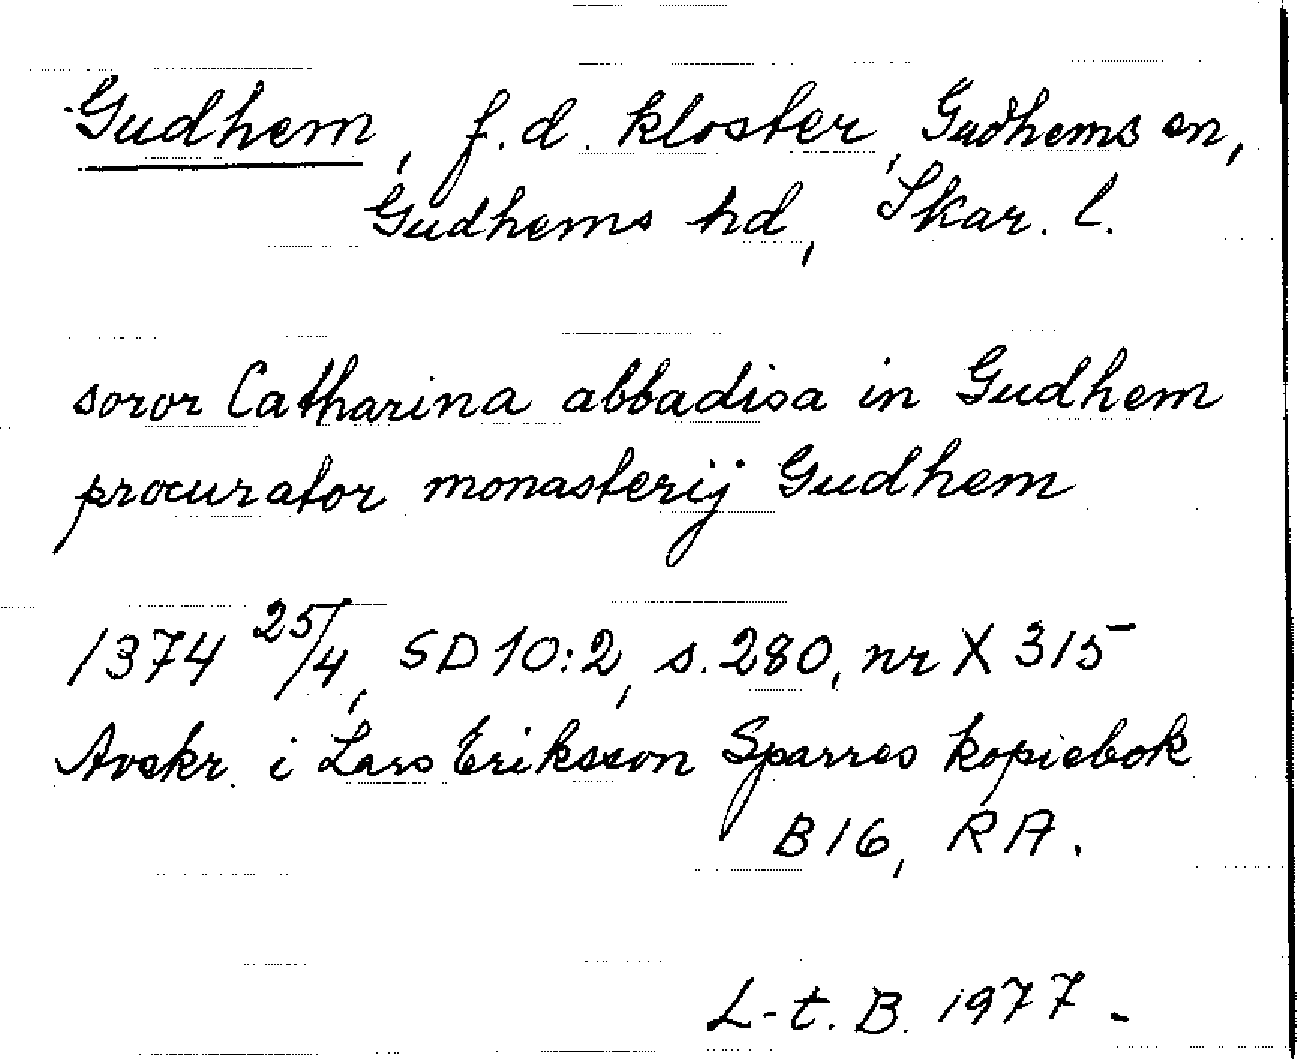 Gudhem, f.d. kloster, Gudhems sn,
Gudhems hd, Skar. l.
soror Catharina abbadisa in Gudhem
procurator monasterij Gudhem
1374 25/4, SD 10:2, s. 280, nr X 315
Avskr. i Lars Eriksson Sparres kopiebok
B 16, RA.
L-t. B. 1977 -